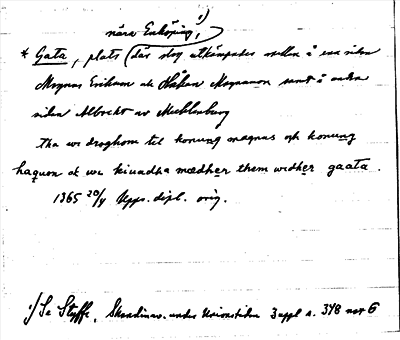 nära Enköping, ¹)
* Gata, plats (där slag utkämpades mellan å ena sidan
Magnus Erikson och Håkan Magnusson samt å andra
sidan Albrecht av Mecklenburg
tha wi droghom til konung magnus och konung
haquon ok wi kiuadha mædher them widher gaata.
1365 20/4 Upps. dipl. orig.
¹/ Se Styffe, Skandinav. under Unionstiden 3 uppl s. 348 not 6